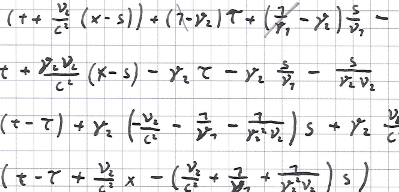 (t + v₂/c² (x-s)) + (1-γ₂) τ + (1/γ₁ - γ₂) s/v₁ -
t + γ₂v₂/c² (x-s) - γ₂ τ - γ₂ s/v₁ - s/(γ₂v₂)
(t-τ) + γ₂ (-v₂/c² - 1/v₁ - 1/(γ₂²v₂)) s + γ₂
(t-τ + v₂/c² x - (v₂/c² + 1/v₁ + 1/(γ₂²v₂)) s)